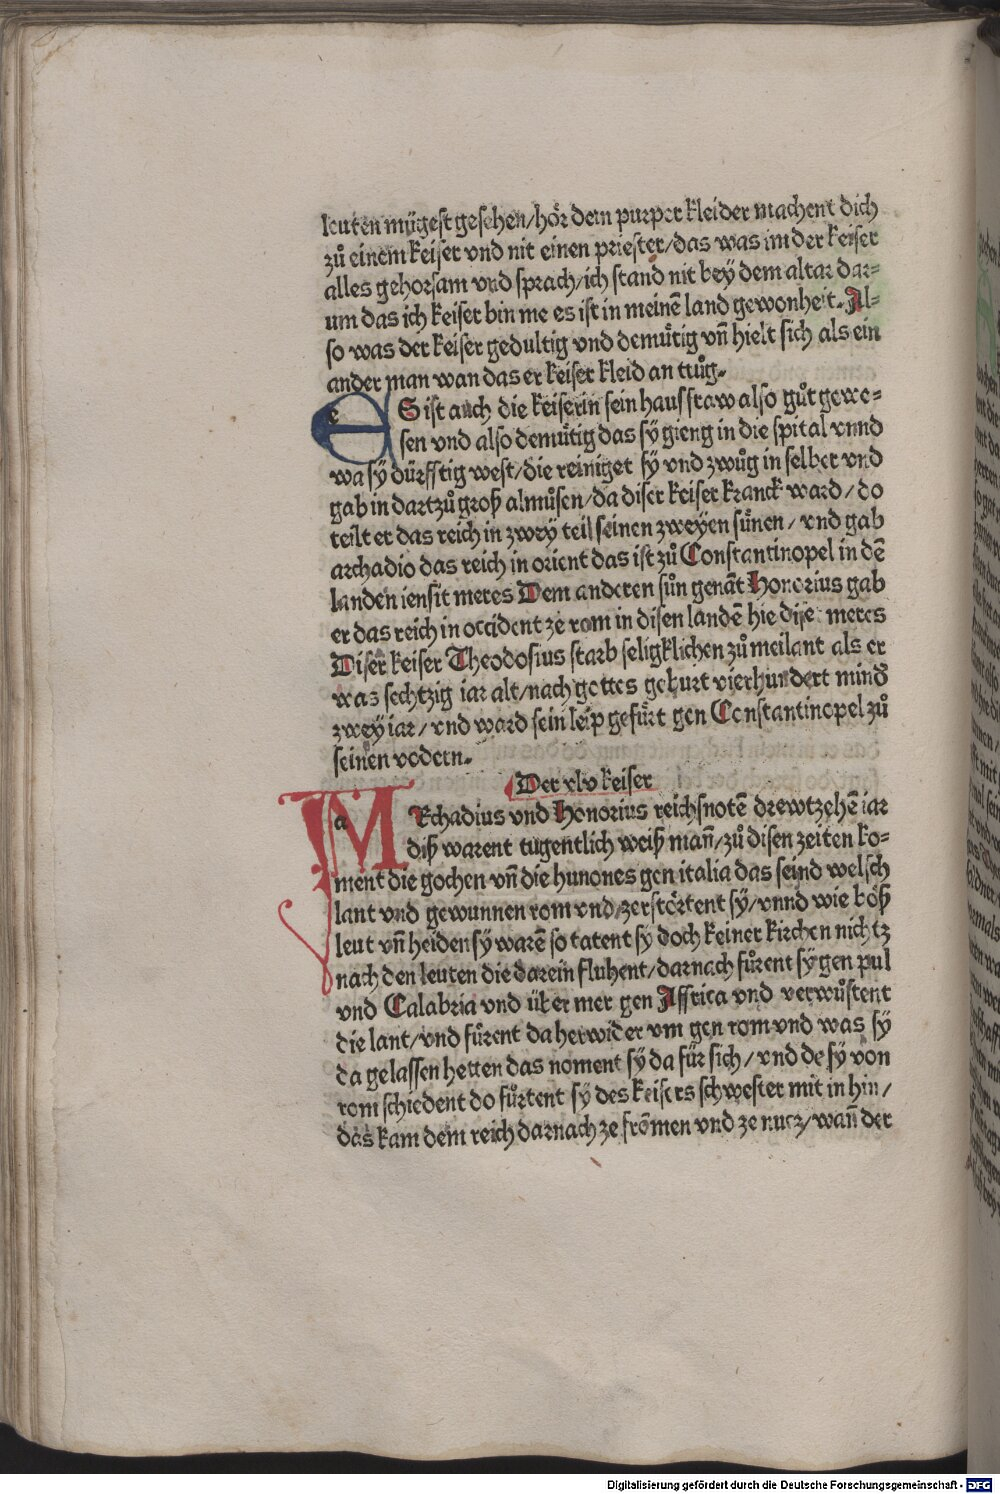 leuten mügest gesehen/hoͤr dem purper kleider machent dich
zuͦ einem keiser vnd nit einen priester/das was im der keiser
alles gehorsam vnd sprach/ich stand nit bey dem altar dar⸗
um das ich keiser bin me es ist in meinē land gewonheit. Al⸗
so was der keiser gedultig vnd demuͤtig vn̄ hielt sich als ein
ander man wan das er keiser kleid an truͦg.
e S ist auch die keiserin sein hausfraw also guͦt gewe⸗
sen vnd also demuͤtig das sÿ gieng in die spital vnnd
wa sÿ dürfftig west/die reiniget sÿ vnd zwuͦg in selber vnd
gab in dartzuͦ groß almuͦsen/da diser keiser kranck ward/do
teilt er das reich in zwey teil seinen zweyen suͤnen/vnd gab
archadio das reich in orient das ist zuͦ Constantinopel in dē
landen iensit meres Dem anderen suͦn genāt Honorius gab
er das reich in occident ze rom in disen landē hie diset meres
Diser keiser Theodosius starb seligklichen zuͦ meilant als er
was sechtzig iar alt/nach gottes geburt vierhundert mind
zwey iar/vnd ward sein leip gefuͤrt gen Constantinopel zuͦ
seinen vodern.
Der xlv keiser
a Rchadius vnd Honorius reichsnotē drewtzehē iar
diß warent tugentlich weiß man̄/zuͦ disen zeiten ko⸗
ment die gochen vn̄ die hunones gen italia das seind welsch
lant vnd gewunnen rom vnd zerstoͤrtent sÿ/vnnd wie boͤß
leut vn̄ heiden sÿ warē so tatent sÿ doch keiner kirchen nichtz
nach den leuten die darein fluhent/darnach fuͤrent sÿ gen pul
vnd Calabria vnd über mer gen Affrica vnd verwuͦstent
die lant/vnd fuͤrent da herwider vm gen rom vnd was sÿ
da gelassen hetten das noment sÿ da für sich/vnd de sÿ von
rom schiedent do fuͦrtent sÿ des keisers schwester mit in hin/
das kam dem reich darnach ze fromen vnd ze nucz/wan̄ der
Digitalisierung gefördert durch die Deutsche Forschungsgemeinschaft - DFG